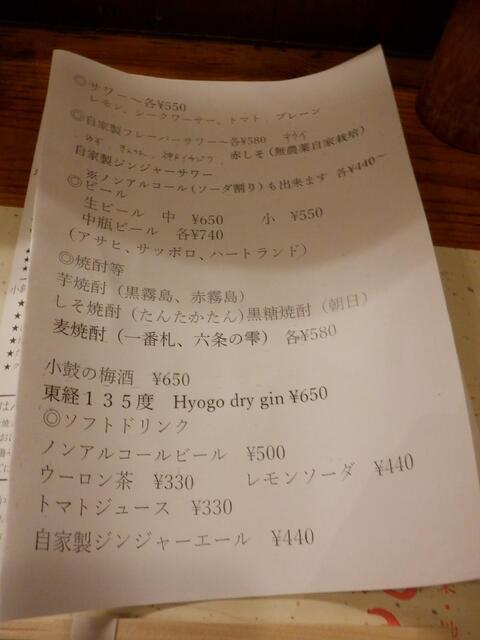 ◎サワー～各¥550
レモン、シークワーサー、トマト、プレーン
◎自家製フレーバーサワー～各¥580
ゆず
赤しそ（無農薬自家栽培）
自家製ジンジャーサワー
※ノンアルコール（ソーダ割り）も出来ます 各¥440～
◎ビール
生ビール 中 ¥650 小 ¥550
中瓶ビール 各¥740
（アサヒ、サッポロ、ハートランド）
◎焼酎等
芋焼酎（黒霧島、赤霧島）
しそ焼酎（たんたかたん）黒糖焼酎（朝日）
麦焼酎（一番札、六条の雫） 各¥580
小鼓の梅酒 ¥650
東経１３５度 Hyogo dry gin ¥650
◎ソフトドリンク
ノンアルコールビール ¥500
ウーロン茶 ¥330 レモンソーダ ¥440
トマトジュース ¥330
自家製ジンジャーエール ¥440